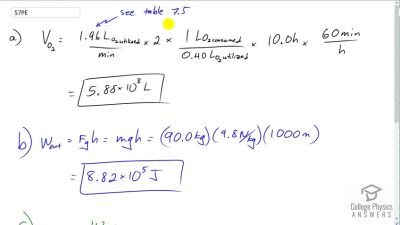 57PE
see table 7.5
a) V_O2 = 1.96 L_O2 utilized / min × 2 × 1 L_O2 consumed / 0.40 L_O2 utilized × 10.0h × 60 min / h
= 5.88 × 10³ L
b) W_out = F_g h = mgh = (90.0 kg)(9.8 N/kg)(1000 m)
= 8.82 × 10⁵ J
College Physics
ANSWERS